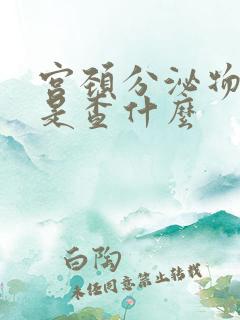 宫頚分泌物
是查什麽
白陶
未经同意禁止转载